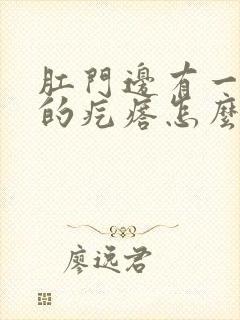 肛門邊有一
的疙瘩怎麼
廖逸君